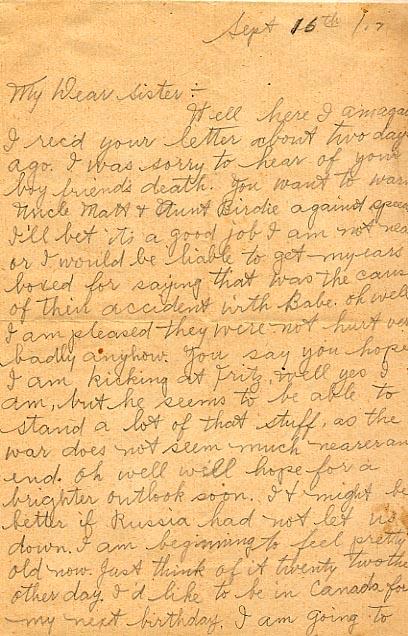 Sept 16th /17
My Dear Sister :-
Well here I am aga
I rec'd your letter about two day
ago. I was sorry to hear of your
boy friends death. You want to warn
Uncle Matt & Aunt Birdie against spee
I'll bet its a good job I am not nea
or I would be liable to get my ears
boxed for saying that was the caus
of their accident with Babe. oh well
I am pleased they were not hurt ver
badly anyhow. You say you hope
I am kicking at Fritz, well yes I
am, but he seems to be able to
stand a lot of that stuff, as the
war does not seem much nearer an
end. Oh well will hope for a
brighter outlook soon. It might be
better if Russia had not let us
down. I am beginning to feel pretty
old now. Just think of it twenty two the
other day. I'd like to be in Canada for
my next birthday. I am going to